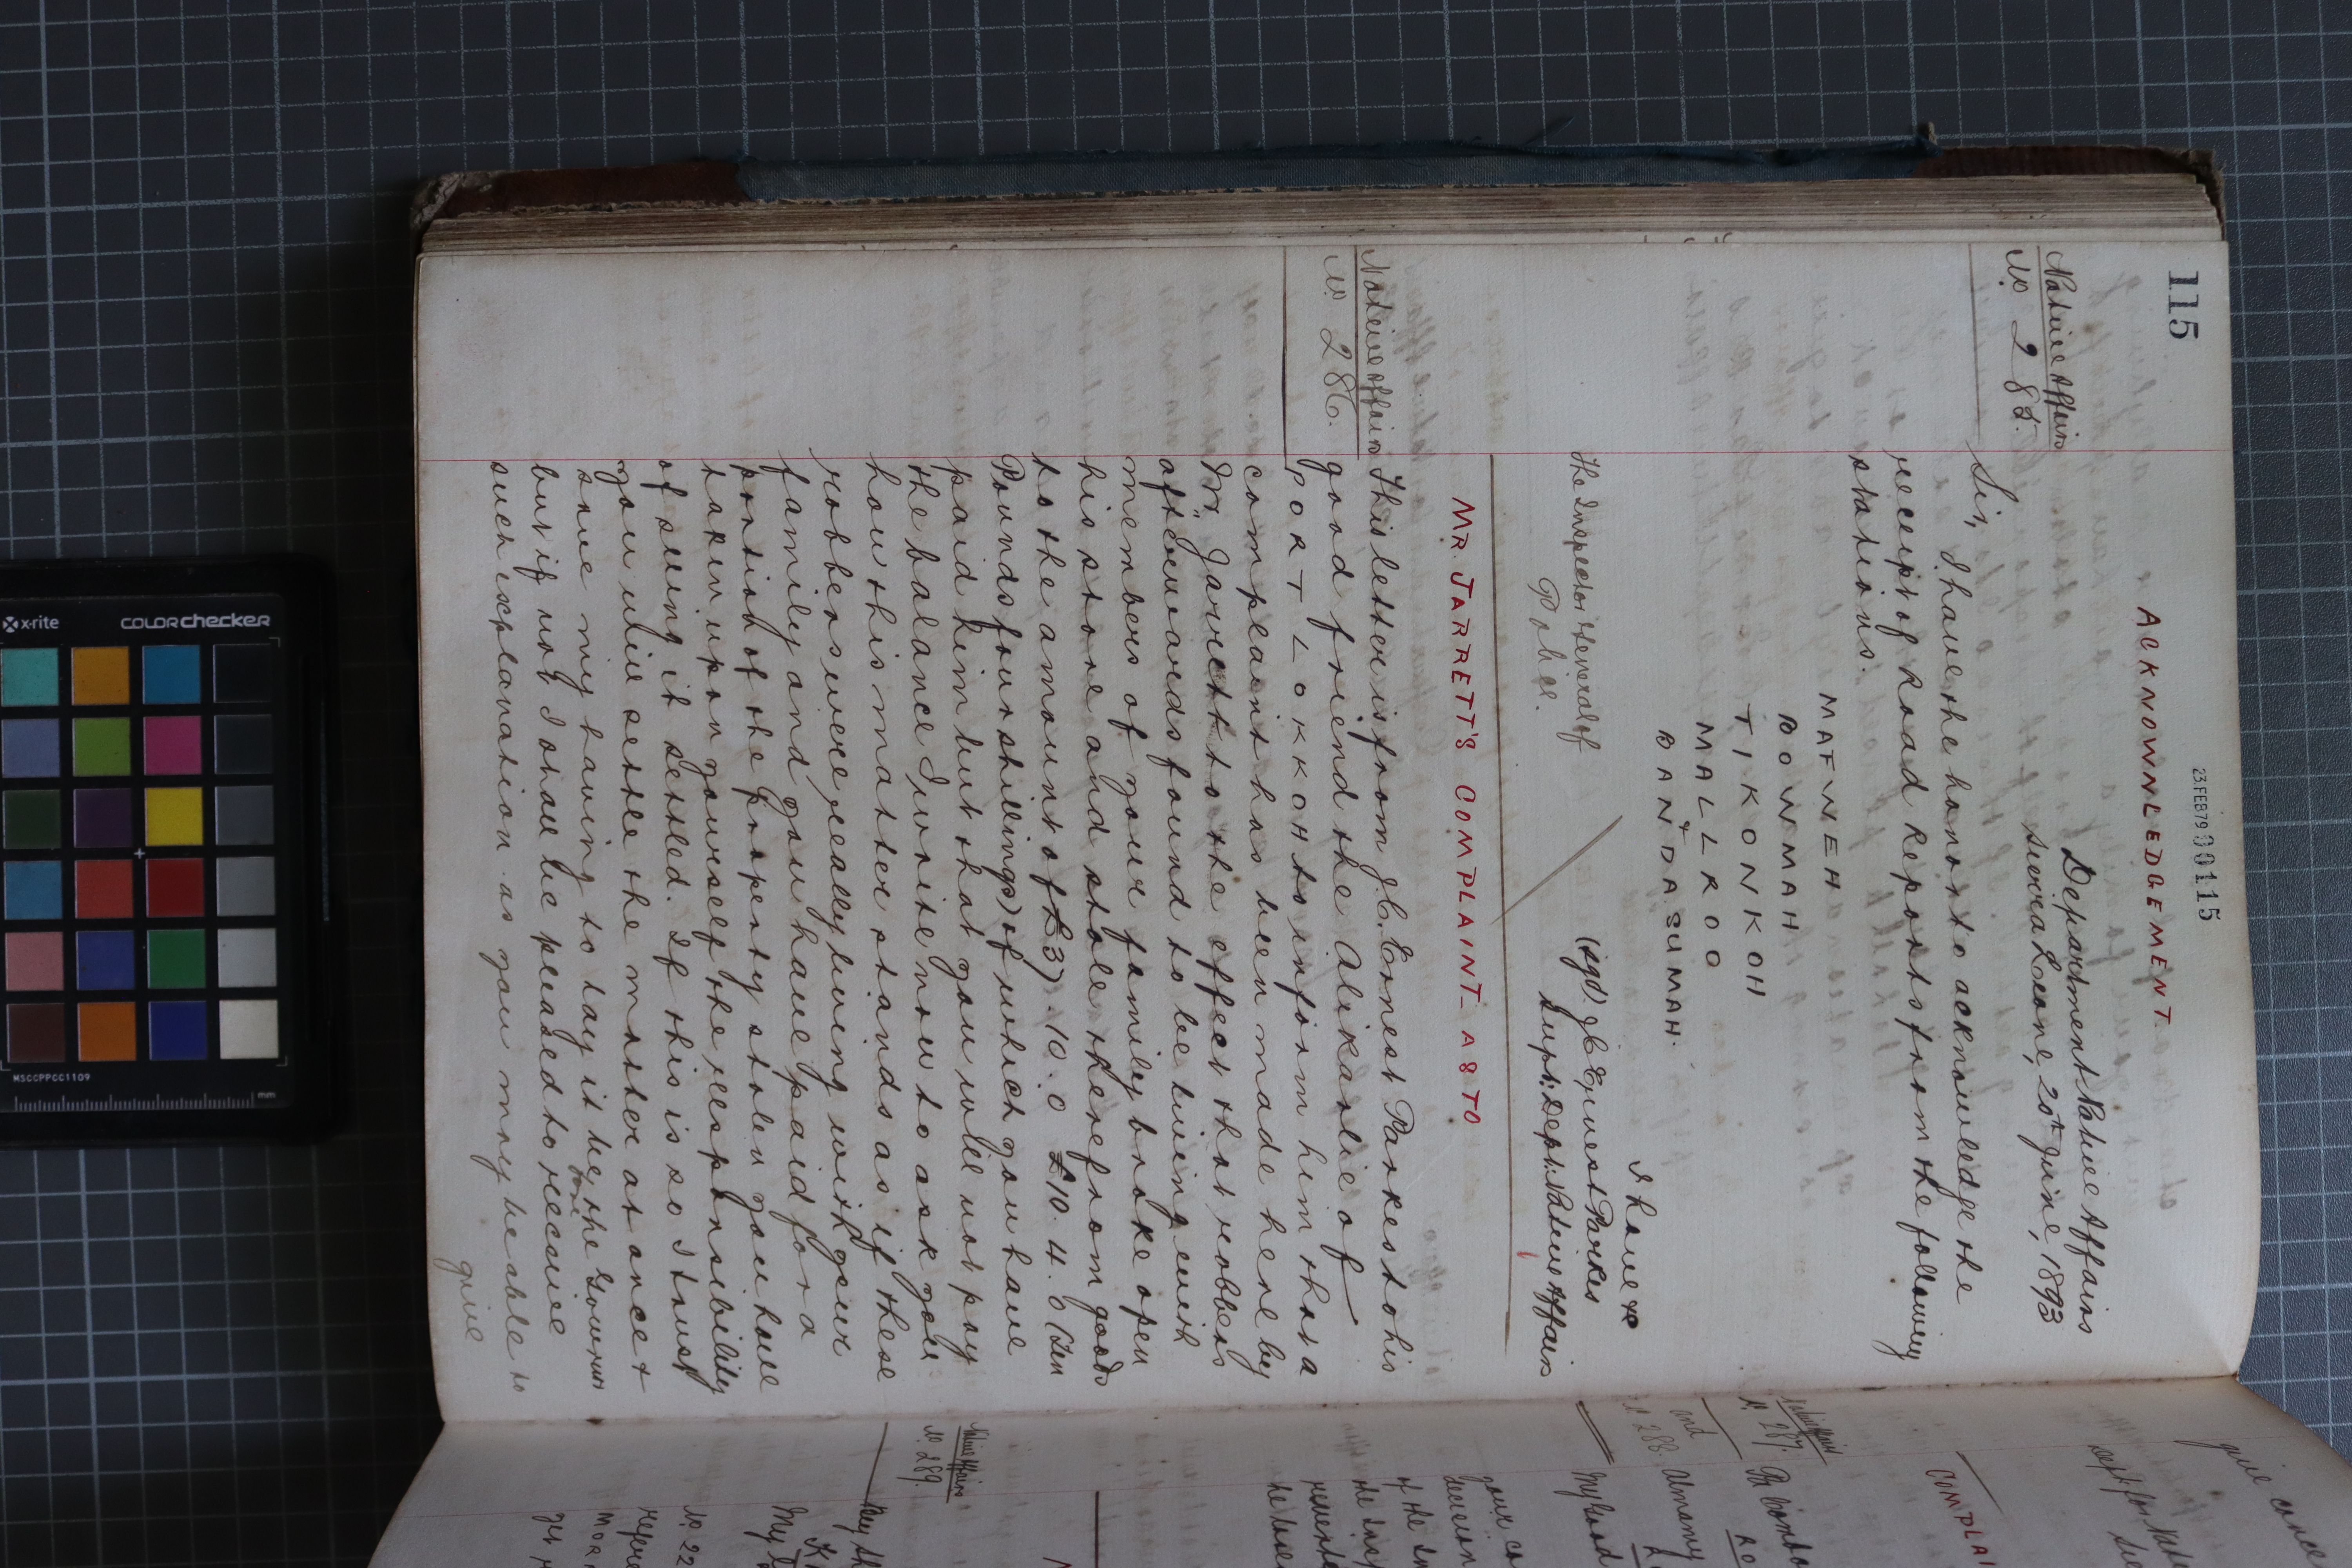 115
23 FEB 79 00115
ACKNOWNLEDGEMENT
Department Native Affairs
Sierra Leone, 20th June, 1893
Native Affairs
No. 285.
Sir,
I have the honor to acknowledge the
receipt of Road Reports from the following
stations.
MAFWEH
BOWMAH
TIKONKOH
MALLROO
&
BANDASUMAH.
I have &c
(sgd) J.C. Ernest Parkes
Supt: Dept: Native Affairs
The Inspector General of
Police.
MR. JARRETT'S COMPLAINT AS TO
Native Affairs
No. 286.
This letter is from J.C. Ernest Parkes to his
good friend the Alikarlie of
PORT LOKKOH to inform him that a
complaint has been made here by
Mr. Jarrett to the effect that robbers
afterwards found to be living with
members of your family broke open
his store and stole therefrom goods
to the amount of £37.10.0 £10.4.0 (Ten
Pounds four shillings) of which you have
paid him but that you will not pay
the balance I write now to ask you
how this matter stands as if these
robbers were really living with your
family and you have paid for a
portion of the property stolen you have
taken upon yourself the responsibility
of seeing it settled. If this is so I trust
you will settle the matter at once &
save my having to lay it before the Governor
but if not I shall be pleased to receive
such explanation as you may be able to
give
give
COMPLAI
Native Affairs
No. 287.
and
No. 288.
Almamy
My Good
your co
decision
of the
he
Native Affairs
No. 289.
My
No. 22
MOR